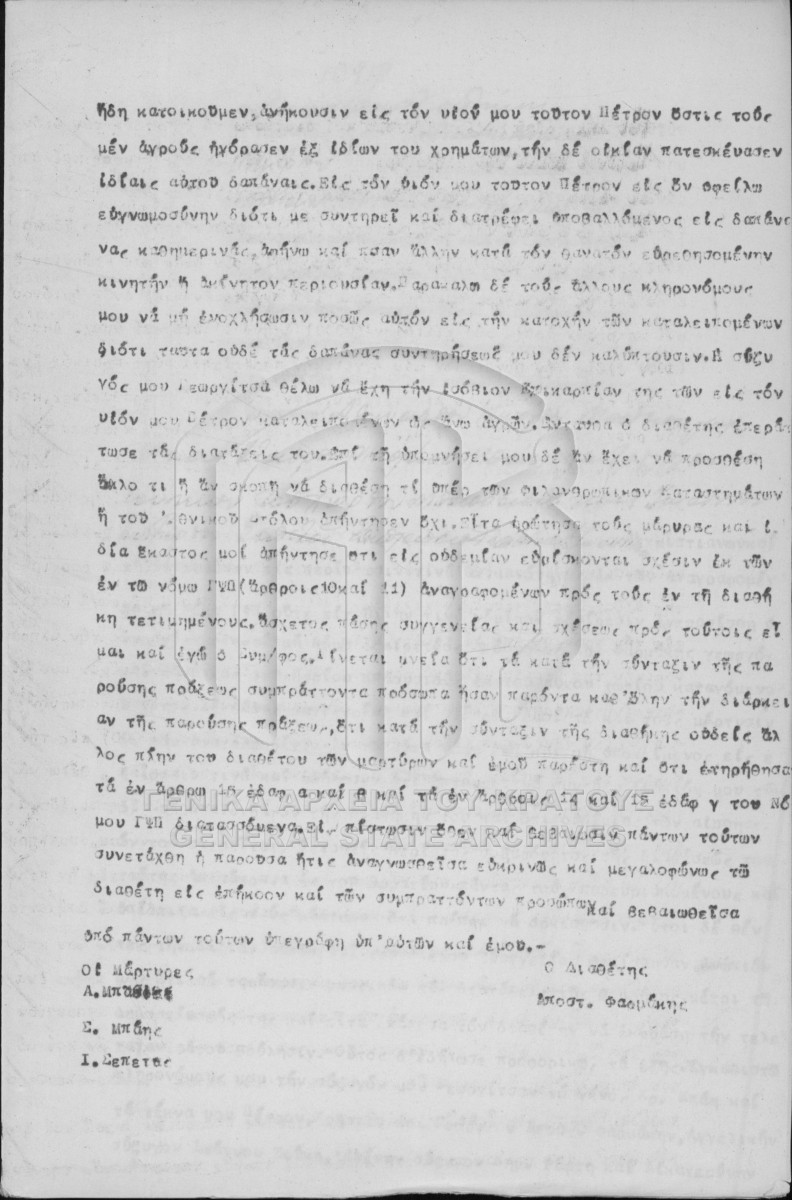 ἤδη κατοικοῦμεν,ἀνήκουσιν εἰς τόν υἱόν μου τοῦτον Πέτρον ὅστις τούς
μέν ἀγρούς ἠγόρασεν ἐξ ἰδίων του χρημάτων,τήν δέ οἰκίαν πατεσκέυασεν
ἰδίαις αὐτοῦ δαπάναις.Εἰς τόν υἱόν μου τοῦτον Πέτρον εἰς ὅν ὀφείλω
εὐγνωμοσύνην διότι με συντηρεῖ καί διατρέφει ὑποβαλλόμενος εἰς δαπάνα
νας καθημερινάς,ἀφήνω καί πσαν ἄλλην κατά τόν θάνατόν εὑρεθησομένην
κινητήν ἤ ἀκίνητον περιουσίαν.Παρακαλῶ δέ τούς ἄλλους κληρονόμους
μου νά μή ἐνοχλήσωσιν ποσῶς αὐτόν εἰς τήν κατοχήν τῶν καταλειπομένων
διότι ταῦτα οὐδέ τάς δαπάνας συντηρήσεώς μου δέν καλύπτουσιν.Η σύζυ
γός μου Γεωργίτσα θέλω νά ἔχη τήν ἰσόβιον ἐπικαρπίαν της τῶν εἰς τόν
υἱόν μου Πέτρον καταλειπομένων ὡς ἄνω ἀγρῶν.Ενταυθα ὁ διαθέτης ἐπερά
τωσε τάς διατάξεις του.Επί τῇ ὑπομνήσει μου δέ ἄν ἔχει νά προσθέση
ἄλλο τι ἤ ἄν σκοπῇ νά διαθέση τί ὑπέρ τῶν Φιλανθρωπικῶν Καταστημάτων
ἤ τοῦ Εθνικοῦ Στόλου ἀπήντησεν ὄχι.Εἶτα ἠρώτησα τούς μάρυρας καί ἰ
δία ἕκαστος μοί ἀπήντησε ὅτι εἰς οὐδεμίαν εὑρίσκονται σχέσιν ἐκ τῶν
ἐν τῶ νόμω ΓΨΠ(ἄρθροις10καί 11) ἀναγραφομένων πρός τούς ἐν τῇ διαθή
κη τετιμημένους.Ασχετος πάσης συγγενείας καί σχέσεως πρός τούτοις εἶ
μαι καί ἐγώ ὁ Συμ/φος.Γίνεται μνεία ὅτι τά κατά τήν σύνταξιν τῆς πα
ρούσης πράξεως συμπράττοντα πρόσωπα ἦσαν παρόντα καθ'ὅλην τήν διάρκει
αν τῆς παρούσης πράξεως,ὅτι κατά τήν σύνταξιν τῆς διαθήκης οὐδείς ἄλ
λος πλην του διαθέτου τῶν μαρτύρων καί ἐμοῦ παρέστη καί ὅτι ἐτηρήθησα
τά ἐν ἄρθρω 15 ἐδαφ α καί β καί τά ἐν ἄρθροις 14 καί 15 ἐδάφ γ του Νό
μου ΓΨΠ διατασσόμενα.Εἰς πίστωσιν ὅθεν καί βεβαίωσιν πάντων τούτων
συνετάχθη ἡ παρουσα ἥτις ἀναγνωσθεῖσα εὐκρινῶς καί μεγαλοφώνως τῶ
διαθέτη εἰς ἐπήκοον καί τῶν συμπραττόντων προσώπων καί βεβαιωθεῖσα
ὑπό πάντων τούτων ὑπεγράφη ὑπ'αὐτῶν καί ἐμου.-
Οἱ Μάρτυρες
Ο Διαθέτης
Αποστ. Φαρμάκης
Σ. Μπάης
Ι.Σεπετας
ΓΕΝΙΚΑ ΑΡΧΕΙΑ ΤΟΥ ΚΡΑΤΟΥΣ
GENERAL STATE ARCHIVES